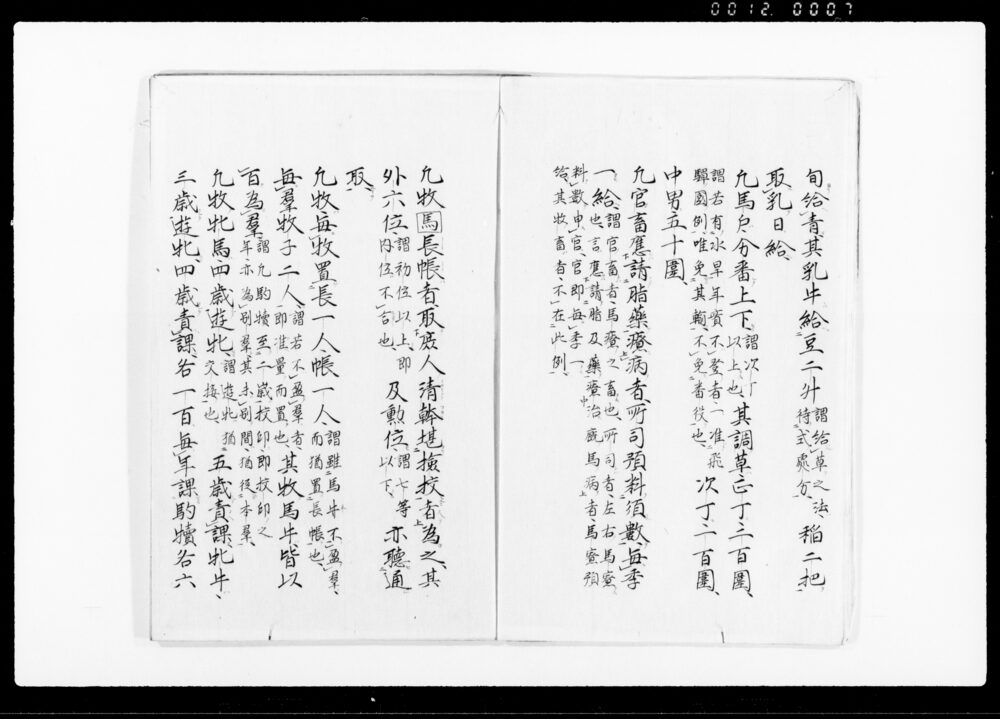 0012 0007
旬給青其乳牛給豆二升謂給草之法待式處分稲二把
取乳日給
凢馬戸分番上下謂次丁以上也其調草正丁二百圍
謂若有水旱年實不登者一准飛
驒國例唯免其輸不免番役也次丁一百圍
中男五十圍
凢官畜應請脂藥療病者所司預料須數毎季
一給謂官畜者馬寮之畜也所司者左右馬寮
也言應請脂及藥療治厩馬病者馬寮預
料數申官官即毎季一
給其牧畜者不在此例
凢牧馬長帳者取庶人清幹堪撿挍者為之其
外六位謂初位以上即内位不言也及勲位謂七等以下亦聽通
取
凢牧毎牧置長一人帳一人謂雖馬牛不盈羣而猶置長帳也
毎羣牧子二人謂若不盈羣者即准量而置也其牧馬牛皆以
百為羣謂凢駒犢至二歳挍印即挍印之
年亦為別羣其未別間猶從本羣
凢牧牝馬四歳遊牝謂遊牝猶交接也五歳責課牝牛
三歳遊牝四歳責課各一百毎年課駒犢各六